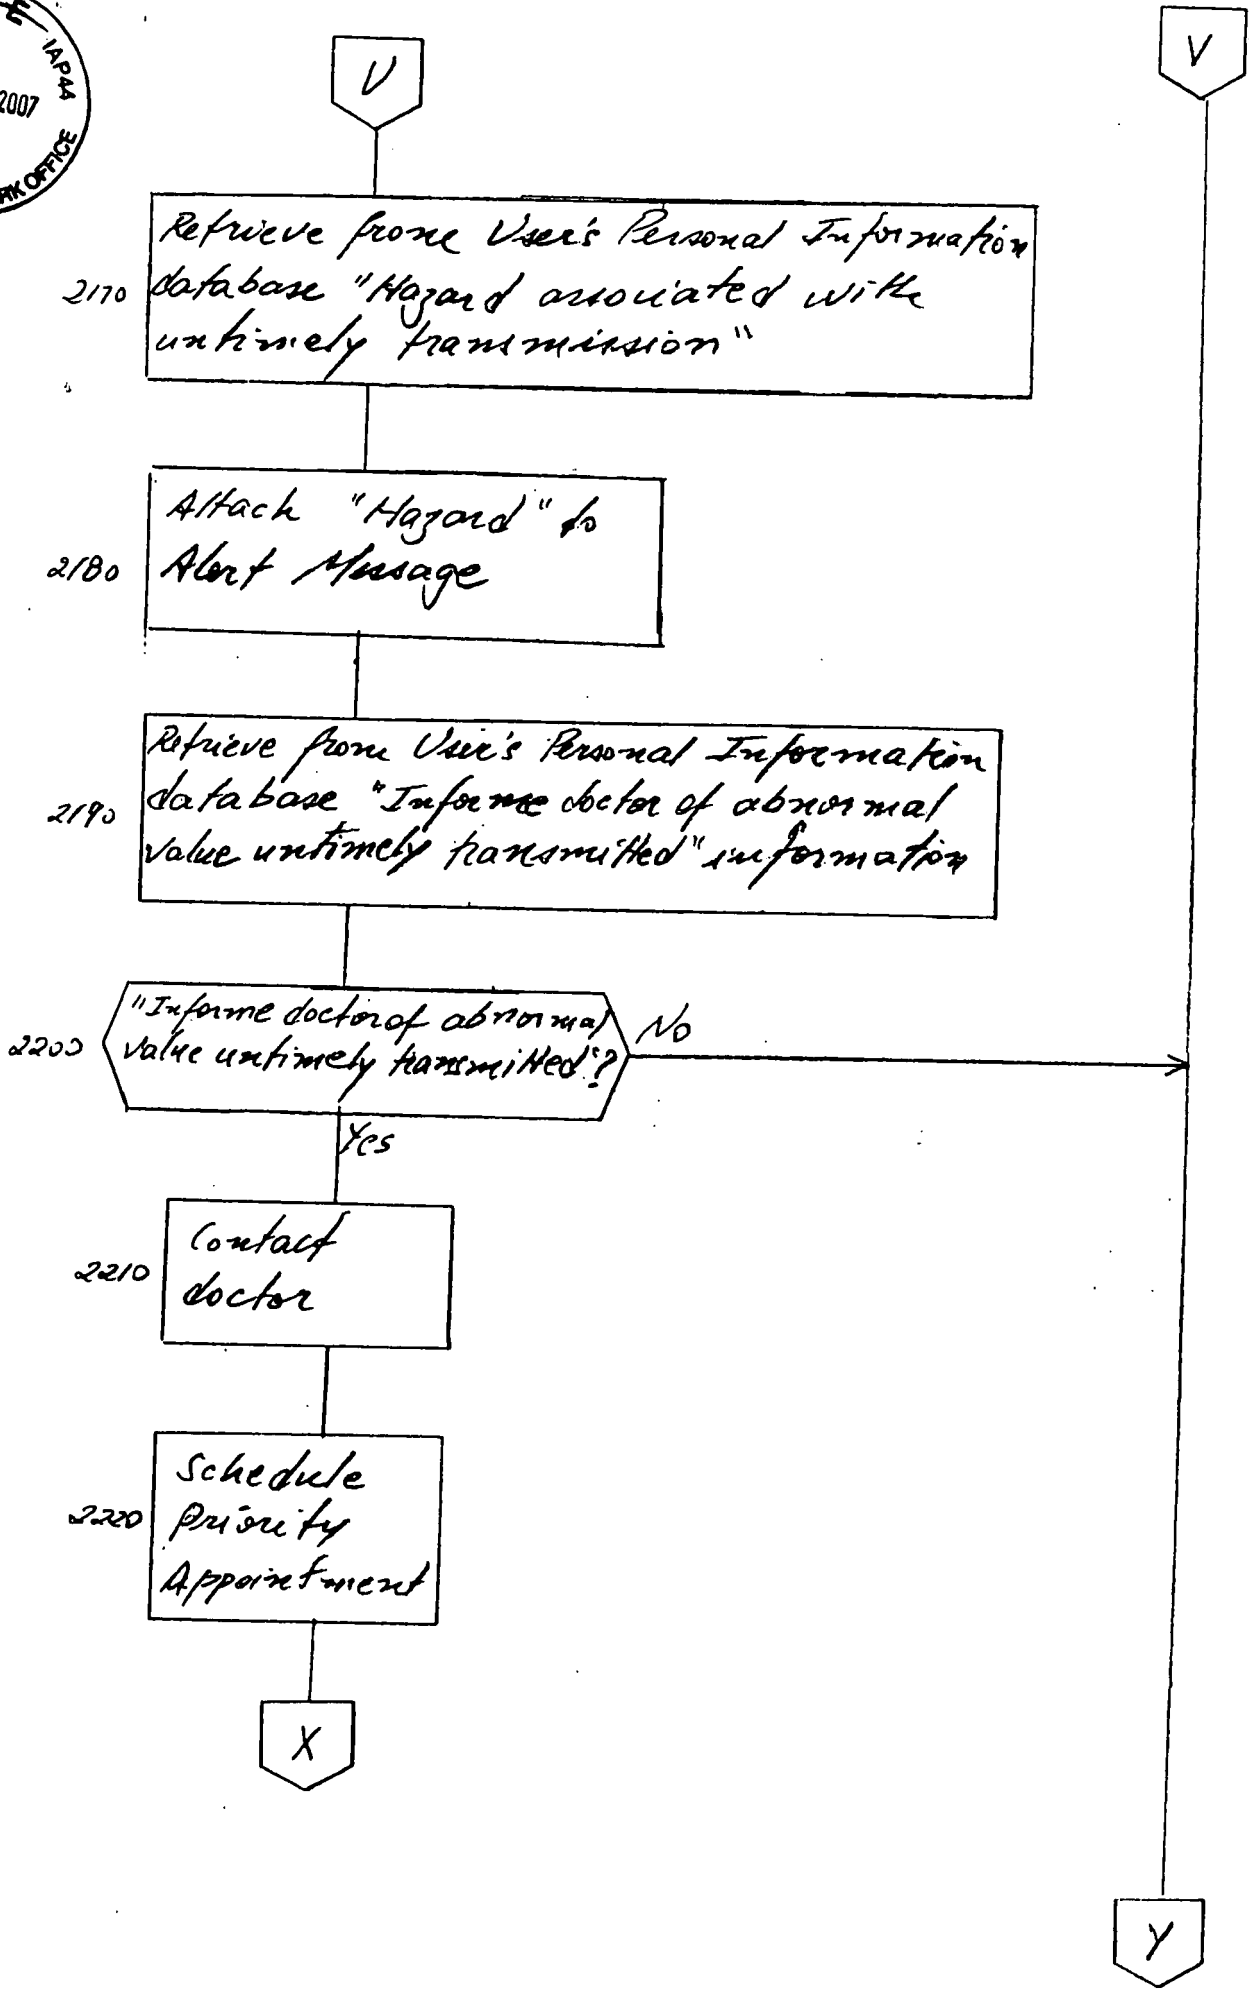 IAP44
2007
OFFICE
U
V
Retrieve from User's Personal Information
2170 database "Hazard associated with
untimely transmission"
Attach "Hazard" to
2180 Alert Message
Retrieve from User's Personal Information
2190 database "Informe doctor of abnormal
value untimely transmitted" information
"Informe doctor of abnormal No
2200 value untimely transmitted"?
Yes
Contact
2210 doctor
Schedule
2220 Priority
Appointment
X
Y